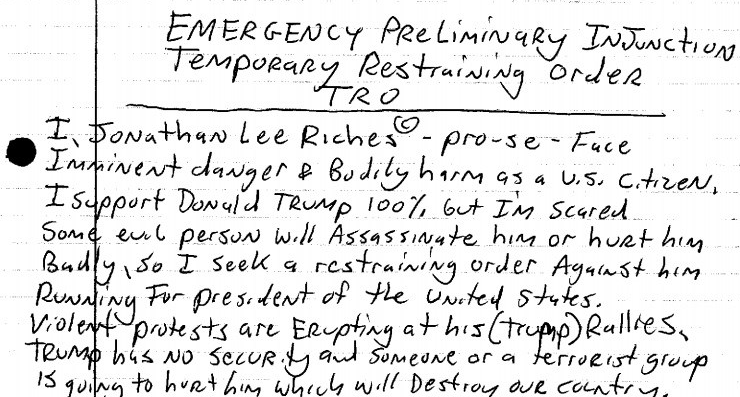 EMERGENCY PRELIMINARY INJUNCTION
TEMPORARY RESTRAINING ORDER
TRO
I, JONATHAN LEE RICHES © - pro-se - Face
Imminent danger & Bodily harm as a U.S. Citizen.
I support DONALD TRUMP 100%, but I'm scared
Some evil person will Assassinate him or hurt him
Badly, So I seek a restraining order Against him
Running For president of the United States.
Violent protests are Erupting at his (Trump) Rallies,
TRUMP has NO Security and Someone or a terrorist group
is going to hurt him which will Destroy our country.